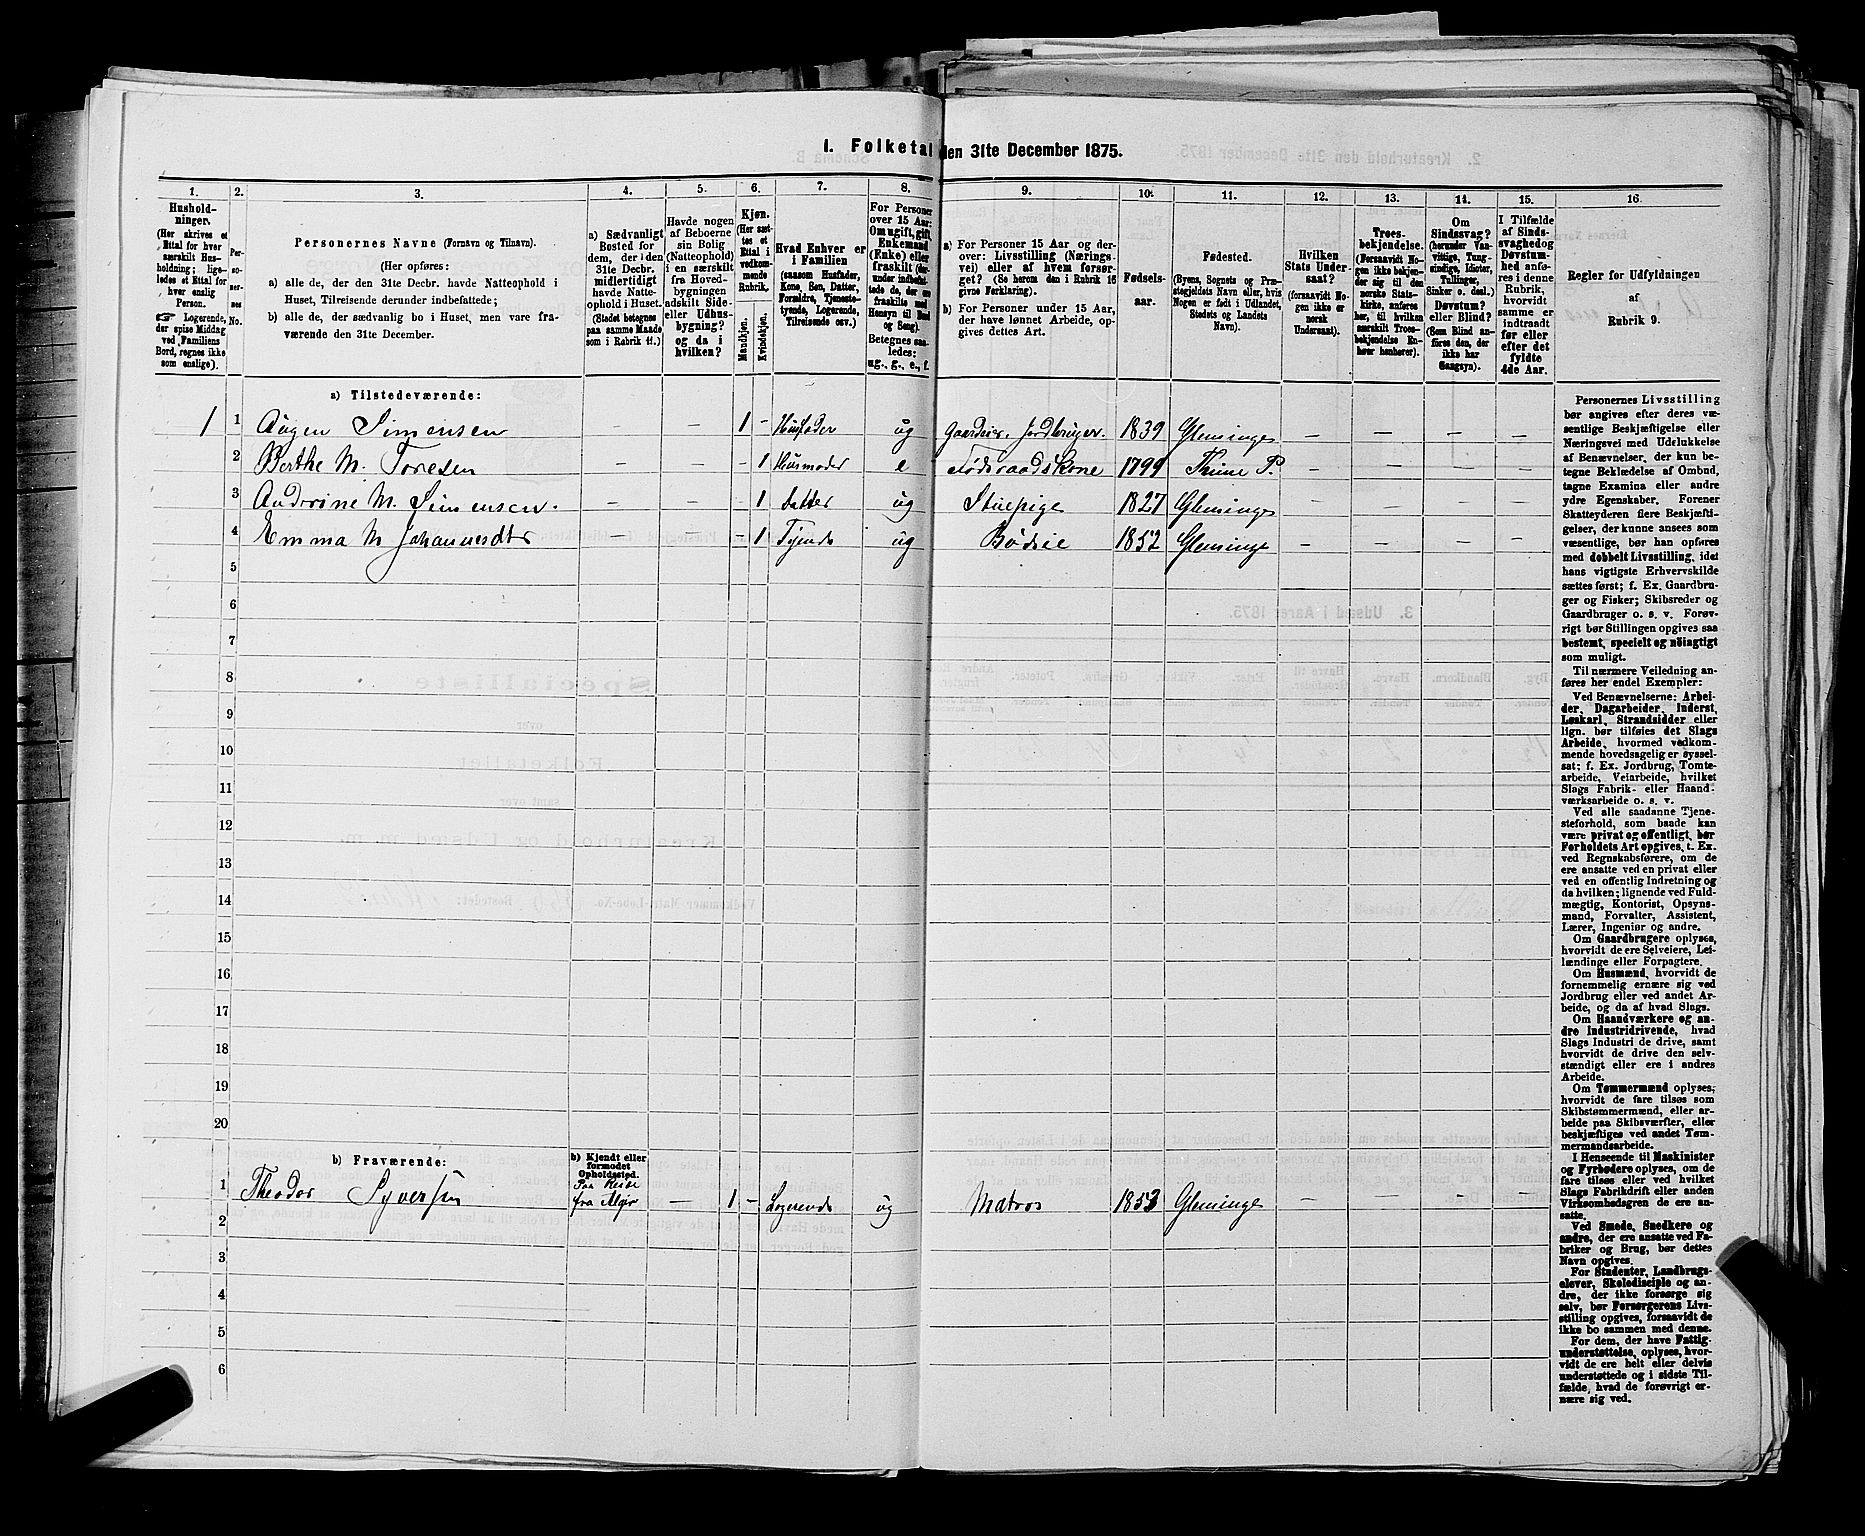 1. Folketal den 31te December 1875.
1. 2. 3. 4. 5. 6. 7. 8. 9. 10. 11. 12. 13. 14. 15. 16.
Hushold-
ninger.
(Her skrives et
Ettal for hver
særskilt Hus-
holdning; lige-
ledes et Ettal for
hver enslig
Person.
☞ Logerende,
der spise Middag
ved Familiens
Bord, regnes ikke
som enslige).
Per-
so-
ner-
nes
No.
Personernes Navne (Fornavn og Tilnavn).
(Her opføres:
a) alle de, der den 31te Decbr. havde Natteophold i
Huset, Tilreisende derunder indbefattede;
b) alle de, der sædvanlig bo i Huset, men vare fra-
værende den 31te December.
a) Sædvanligt
Bosted for
dem, der i den
31te Decbr.
midlertidigt
havde Natte-
ophold i Huset.
(Stedet betegnes
paa samme Maade
som i Rubrik 11.)
Havde nogen
af Beboerne
sin Bolig
(Natteophold)
i en særskilt
fra Hoved-
bygningen
adskilt Side-
eller Udhus-
bygning?
og da i
hvilken?
Kjøn.
(Her sæt-
tes et
Ettal i
vedkom-
mende
Rubrik.
Mandkjøn.
Kvindekjøn.
Hvad Enhver er
i Familien
(saasom Husfader,
Kone, Søn, Datter,
Forældre, Tjeneste-
tyende, Logerende,
Tilreisende osv.)
For Personer
over 15 Aar:
Om ugift, gift,
Enkemand
(Enke) eller
fraskilt
Betegnes saa-
ledes:
ug., g., e., f.
a) For Personer 15 Aar og der-
over: Livsstilling (Nærings-
vei) eller af hvem forsør-
get? (Se herom den i Rubrik 16
givne Forklaring).
b) For Personer under 15 Aar,
der have lønnet Arbeide, op-
gives dettes Art.
Fødsels-
aar.
Fødested.
(Byens, Sognets og Præ-
stegjeldets Navn eller, hvis
Nogen er født i Udlandet,
Stedets og Landets
Navn).
Hvilken
Stats Under-
saat?
(forsaavidt No-
gen ikke er
norsk
Undersaat).
Troes-
bekjendelse.
(Forsaavidt No-
gen ikke bekjen-
der sig til den
norske Stats-
kirke, anføres
her, til hvilken
særskilt Troes-
bekjendelse En-
hver henhører).
Om
Sindssvag?
(herunder Van-
vittige, Tung-
sindige, Idioter,
Tullinger,
Sinker o. desl.)
Døvstum?
eller Blind?
(Som Blind an-
føres den, der
ikke har
Gangsyn).
I Tilfælde
af Sinds-
svaghed og
Døvstum-
hed anfø-
res i denne
Rubrik,
hvorvidt
samme er
indtraadt
før eller
efter det
fyldte
4de Aar.
Regler for Udfyldningen
af
Rubrik 9.
a) Tilstedeværende:
1 1 Augen Simensen – – 1 – Husfader ug Gaardeier. Jordbruger. 1839 Gleminge – – – –
2 Berthe M. Toresen – – – 1 Husmoder e Føderaadskone 1799 Thune P. – – – –
3 Anderine M. Simensen. – – – 1 Datter ug Stuepige 1827 Gleminge – – – –
4 Emma M Johannesdtr – – – 1 Tjende ug Bødeie 1852 Gleminge – – – –
5
6
7
8
9
10
11
12
13
14
15
16
17
18
19
20
b) Fraværende:
b) Kjendt eller
formodet
Opholdssted.
1 Theodor Syversen Paa Reise
fra Algir – 1 – Logerende ug Matros 1853 Gleminge – – – –
2
3
4
5
6
Personernes Livsstilling
bør angives efter deres væ-
sentlige Beskjæftigelse eller
Næringsvei med Udelukkelse
af Benævnelser, der kun be-
tegne Beklædelse af Ombud,
tagne Examina eller andre
ydre Egenskaber. Forener
Skatteyderen flere Beskjæfti-
gelser, der kunne ansees som
væsentlige, bør han opføres
med dobbelt Livsstilling, idet
hans vigtigste Erhvervskilde
sættes først; f. Ex. Gaardbru-
ger og Fisker; Skibsreder og
Gaardbruger o. s. v. Forøv-
rigt bør Stillingen opgives saa
bestemt, specielt og nøiagtigt
som muligt.
Til nærmere Veiledning an-
føres her endel Exempler:
Ved Benævnelserne: Arbei-
der, Dagarbeider, Inderst,
Løskarl, Strandsidder eller
lign. bør tilføies det Slags
Arbeide, hvormed vedkom-
mende hovedsagelig er syssel-
sat; f. Ex. Jordbrug, Tomte-
arbeide, Veiarbeide, hvilket
Slags Fabrik- eller Haand-
værksarbeide o. s. v.
Ved alle saadanne Tjene-
steforhold, som baade kan
være privat og offentligt, bør
Forholdets Art opgives, t. Ex.
ved Regnskabsførere, om de
ere ansatte ved en privat eller
ved en offentlig Indretning og
da hvilken; lignende ved Fuld-
mægtig, Kontorist, Opsyns-
mand, Forvalter, Assistent,
Lærer, Ingeniør og andre.
Om Gaardbrugere oplyses,
hvorvidt de ere Selveiere, Lei-
lændinge eller Forpagtere.
Om Husmænd, hvorvidt de
fornemmelig ernære sig ved
Jordbrug eller ved andet Ar-
beide, og da af hvad Slags.
Om Haandværkere og an-
dre Industridrivende, hvad
Slags Industri de drive, samt
hvorvidt de drive den selv-
stændigt eller ere i andres
Arbeide.
Om Tømmermænd oplyses,
hvorvidt de fare tilsøs som
Skibstømmermænd, eller ar-
beide paa Skibsværfter, eller
beskjæftiges ved andet Tøm-
mermandsarbeide.
I Henseende til Maskinister
og Fyrbødere oplyses, om de
fare tilsøs eller ved hvilket
Slags Fabrikdrift eller anden
Virksomhedsgren de ere an-
satte.
Ved Smede, Snedkere og
andre, der ere ansatte ved Fa-
briker og Brug, bør dettes
Navn opgives.
For Studenter, Landbrugs-
elever, Skoledisciple og an-
dre, der ikke forsørge sig
selv, bør Forsørgerens Livs-
stilling opgives, forsaavidt de
ikke bo sammen med denne.
For dem, der have Fattig-
understøttelse, oplyses, hvor-
vidt de ere helt eller delvis
understøttede og i sidste Til-
fælde, hvad de forøvrigt er-
nære sig ved.